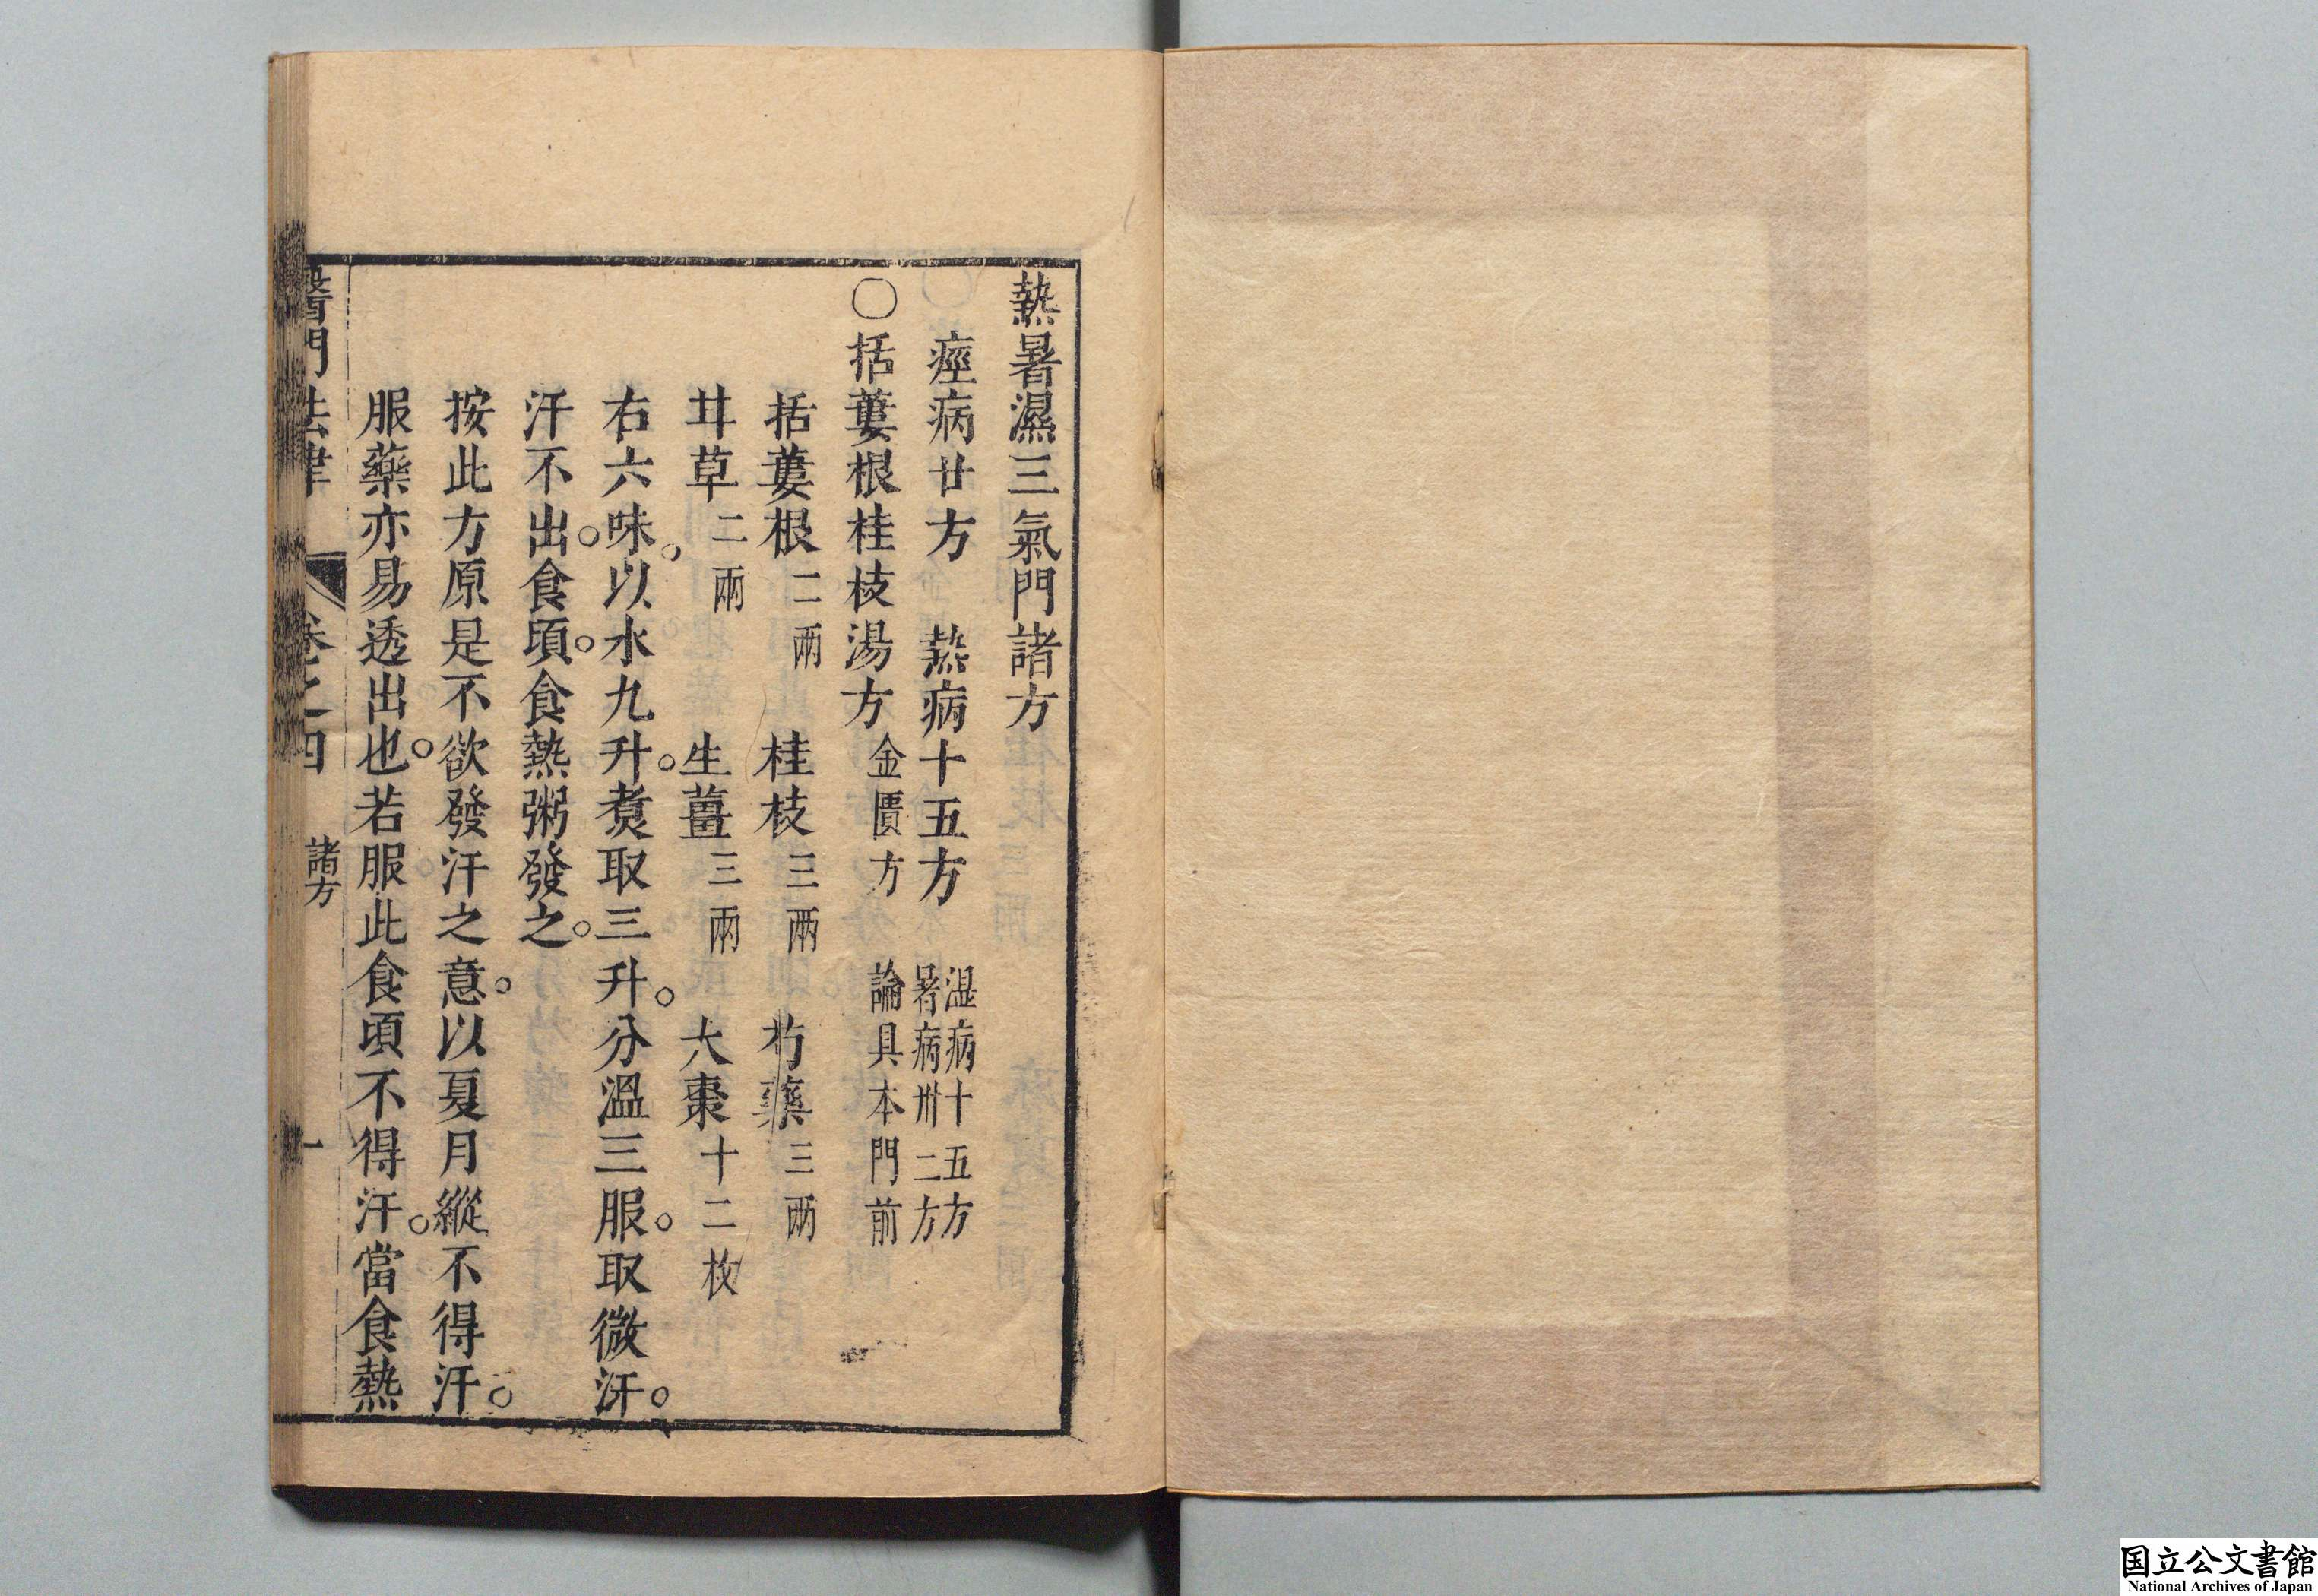 熱暑濕三氣門諸方
痙病廿方　熱病十五方　湿病十五方
暑病卅二方
〇括蔞根桂枝湯方　金匱方　論具本門前
括蔞根二兩　桂枝三兩　芍藥三兩
甘草二兩　生薑三兩　大棗十二枚
右六味。以水九升。煑取三升。分溫三服。取微汗。
汗不出。食頃。食熱粥發之。
按此方原是不欲發汗之意。以夏月縱不得汗。
服藥亦易透出也。若服此食頃不得汗。當食熱
醫門法律　卷之四　諸方　一
国立公文書館
National Archives of Japan